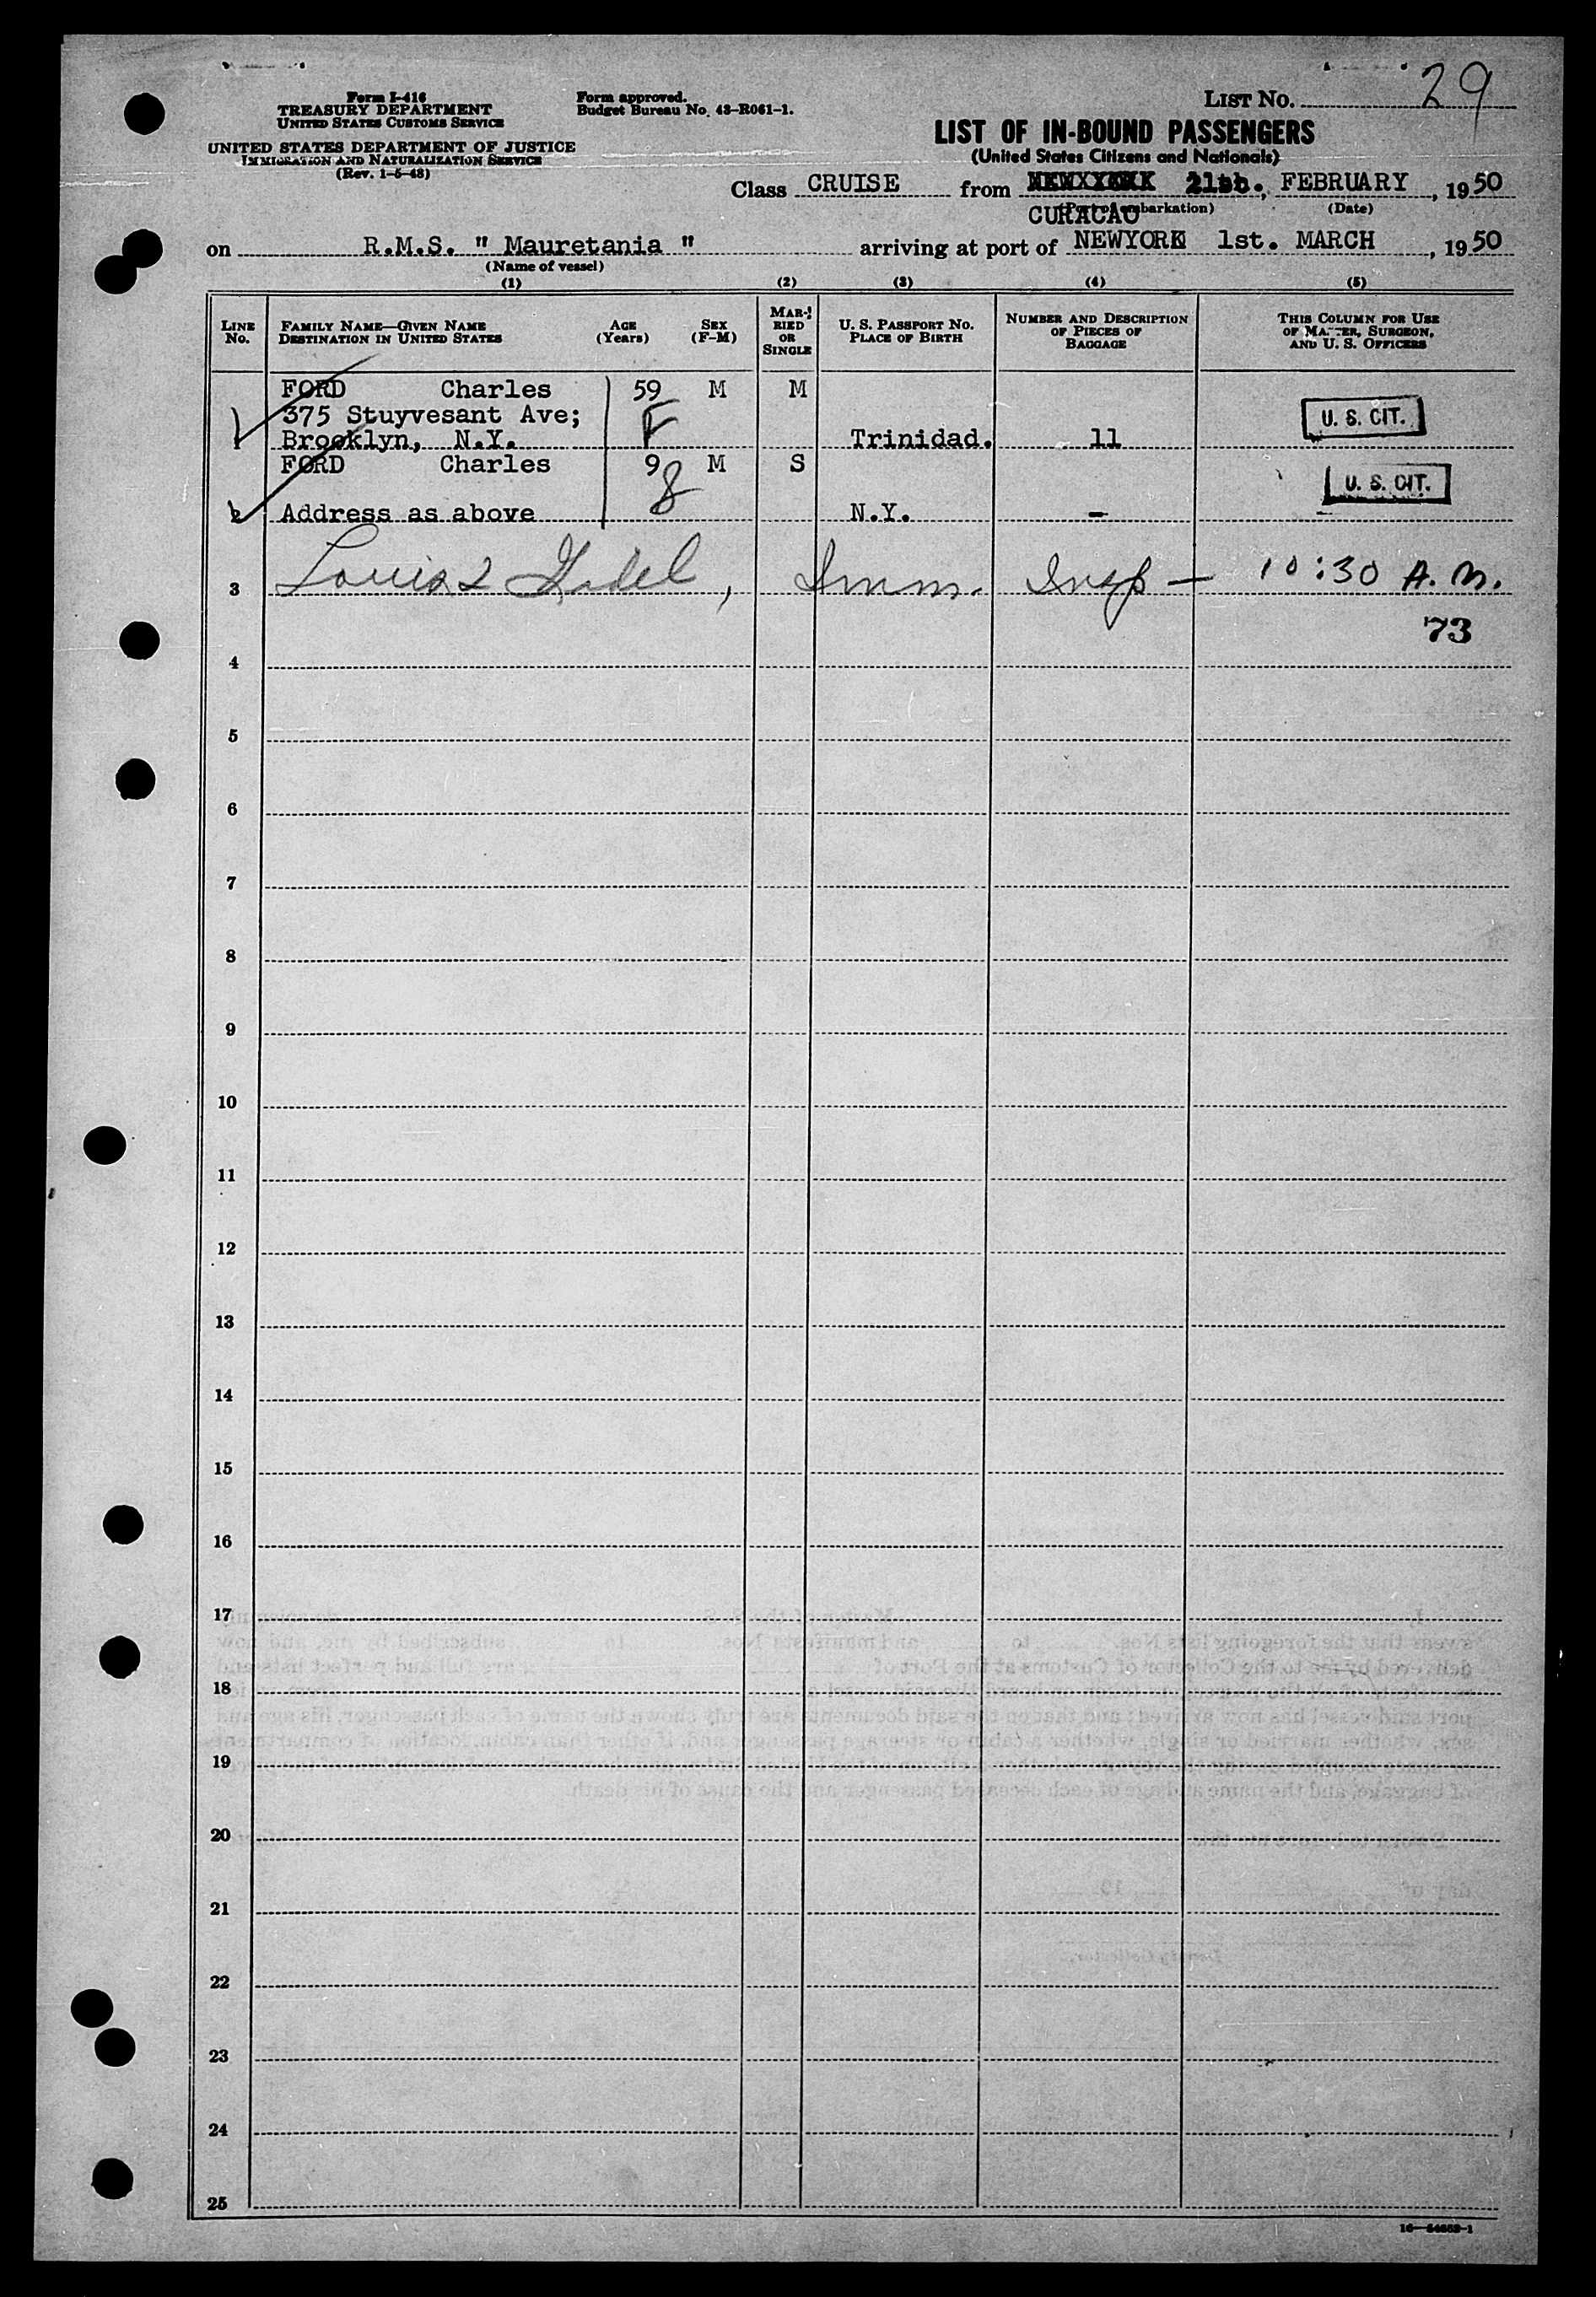 Form I-416
TREASURY DEPARTMENT
UNITED STATES CUSTOMS SERVICE
UNITED STATES DEPARTMENT OF JUSTICE
IMMIGRATION AND NATURALIZATION SERVICE
(Rev. 1-5-48)
Form approved.
Budget Bureau No. 43-R061-1.
LIST NO. 29
LIST OF IN-BOUND PASSENGERS
(United States Citizens and Nationals)
Class CRUISE from FEBRUARY, 1950
CURACAO
(Date)
on R.M.S. " Mauretania " arriving at port of NEWYORK 1st. MARCH, 1950
(Name of vessel)
(1) (2) (3) (4) (5)
LINE NO.
FAMILY NAME—GIVEN NAME
DESTINATION IN UNITED STATES
AGE
(Years)
SEX
(F-M)
MARRIED OR SINGLE
U. S. PASSPORT NO.
PLACE OF BIRTH
NUMBER AND DESCRIPTION
OF PIECES OF
BAGGAGE
THIS COLUMN FOR USE
OF MASTER, SURGEON,
AND U. S. OFFICERS
FORD Charles 59 M M
375 Stuyvesant Ave; F U. S. CIT.
1 Brooklyn, N.Y. Trinidad. 11
FORD Charles 9 M S
8 U. S. CIT.
2 Address as above N.Y. -
3 Louis Imm. Insp — 10:30 A.M.
73
4
5
6
7
8
9
10
11
12
13
14
15
16
17
18
19
20
21
22
23
24
25